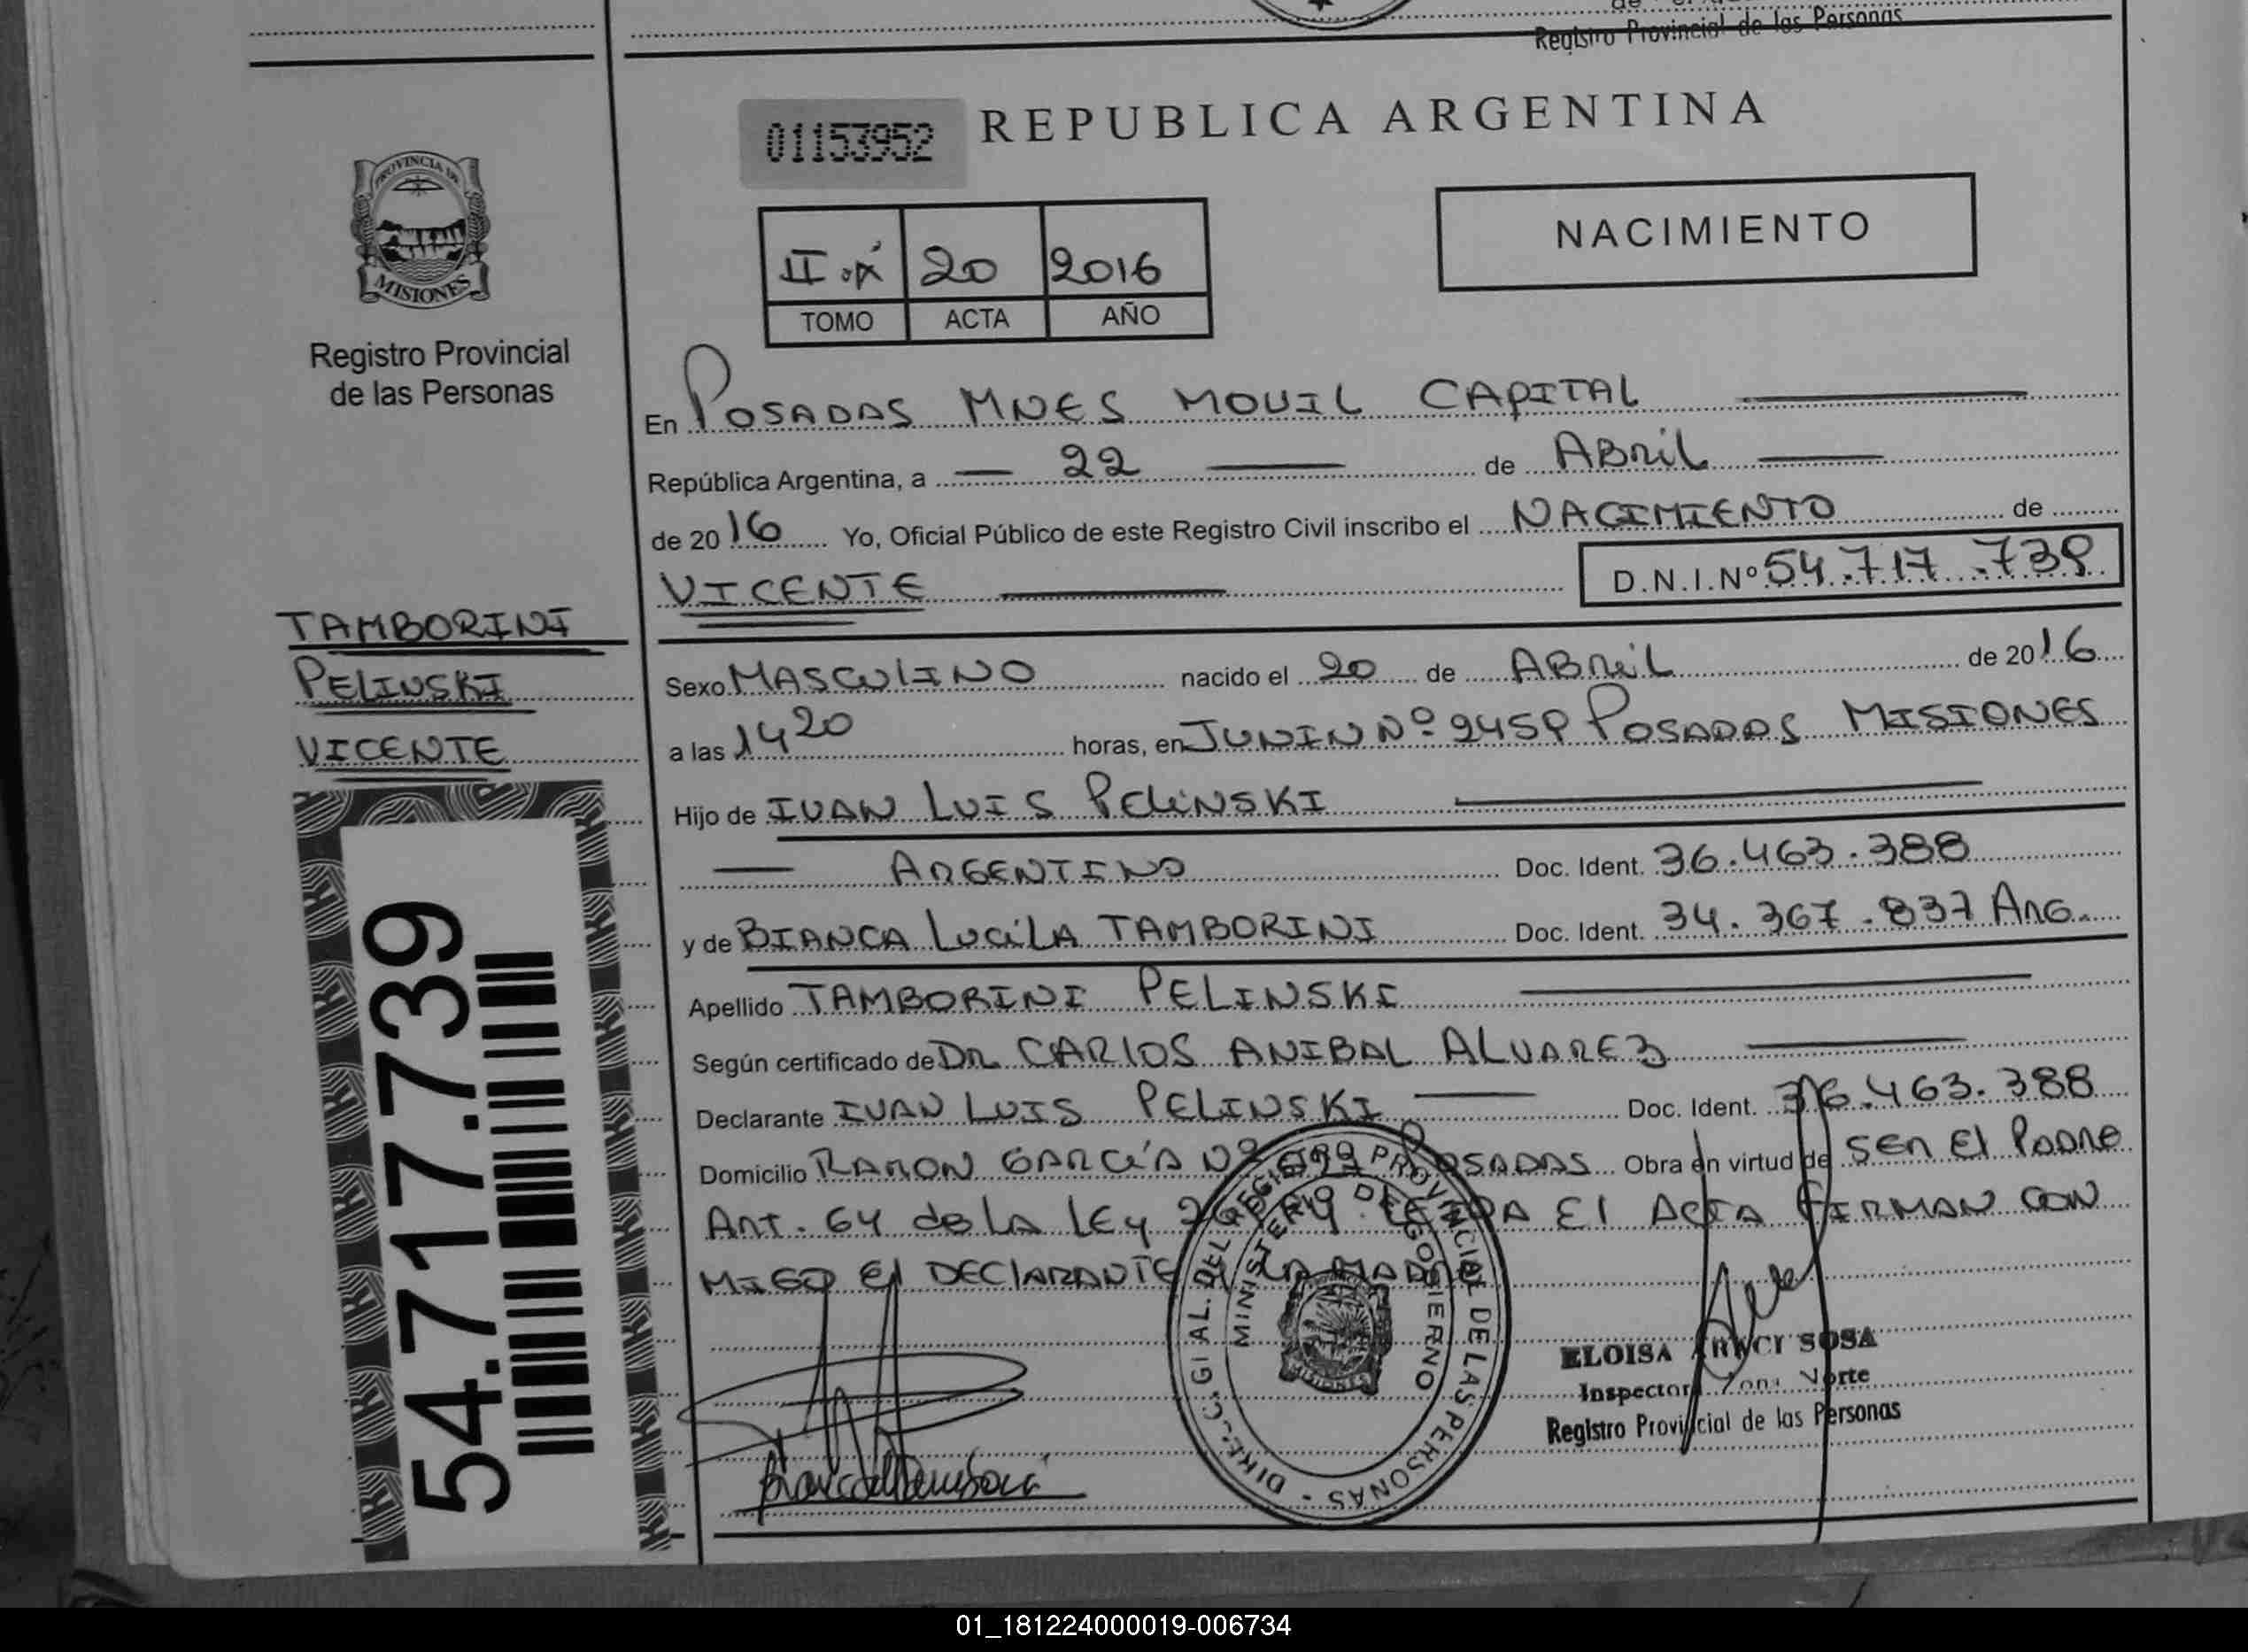 Registro Provincial de las Personas
PROVINCIA DE
MISIONES
Registro Provincial
de las Personas
TAMBORINI
PELINSKI
VICENTE
54.717.739
01153952 REPUBLICA ARGENTINA
NACIMIENTO
II 20 2016
TOMO ACTA AÑO
En POSADAS MNES MOVIL CAPITAL
República Argentina, a 22 de ABRIL
de 2016 Yo, Oficial Público de este Registro Civil inscribo el NACIMIENTO de
VICENTE D.N.I.Nº 54.717.739
Sexo MASCULINO nacido el 20 de ABRIL de 2016
a las 14 20 horas, en JUNIN Nº 2459 POSADAS MISIONES
Hijo de IVAN LUIS PELINSKI
ARGENTINO Doc. Ident. 36.463.388
y de BIANCA LUCILA TAMBORINI Doc. Ident. 34.367.837 ARG.
Apellido TAMBORINI PELINSKI
Según certificado de DR CARLOS ANIBAL ALVAREZ
Declarante IVAN LUIS PELINSKI Doc. Ident. 36.463.388
Domicilio RAMON GARCÍA Nº POSADAS Obra en virtud de SER El PADRE
ART. 64 de LA LEY LEIDA El ACTA FIRMAN CON
MIGO El DECLARANTE Y LA MADRE
DEL REGISTRO PROVINCIAL DE LAS PERSONAS
MINISTERIO DE GOBIERNO
MISIONES
ELOISA ARACI SOSA
Inspector Zona Norte
Registro Provincial de las Personas
01_181224000019-006734